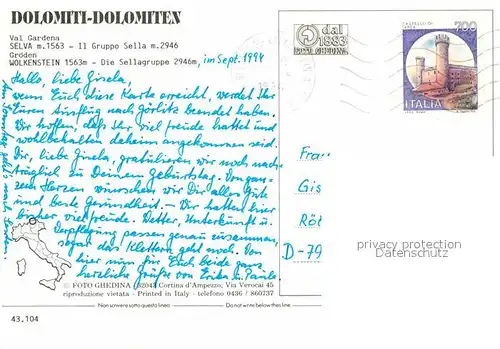 DOLOMITI-DOLOMITEN
Val Gardena
SELVA m.1563 - Il Gruppo Sella m.2946
Gröden
WOLKENSTEIN 1563m - Die Sellagruppe 2946m,
im Sept. 1994
Hallo, liebe Gisela,
wenn Euch diese Karte erreicht, werdet Ihr
Euren Ausflug nach Görlitz beendet haben.
Wir hoffen, daß Ihr viel Freude hattet und
wohlbehalten daheim angekommen seid.
Dir, liebe Gisela, gratulieren wir noch nach-
träglich zu Deinem Geburtstag. Von gan-
zem Herzen wünschen wir Dir alles Gute
und beste Gesundheit. - Wir hatten hier
bisher viel Freude. Wetter, Unterkunft u.
Verpflegung passen genau zusammen,
sogar das Klettern geht noch. Von
hier nun für Euch beide ganz
herzliche Grüße von Erika u. Paule.
dal
1883
FOTO GHEDINA
CASTELLO DI
IVREA
700
ITALIA
Frau
Gis
Röt
D-79
privacy protection
Datenschutz
© FOTO GHEDINA 32043 Cortina d'Ampezzo, Via Verocai 45
riproduzione vietata - Printed in Italy - telefono 0436 / 860737
Non scrivere sotto questa linea
Do not write below this line
43.104